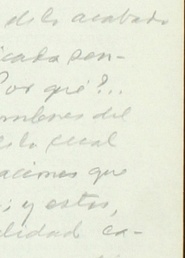 de lo acabado
icada sen-
Por qué?...
umbres del
es lo cual
aciones que
s; y estos,
lidad ca-